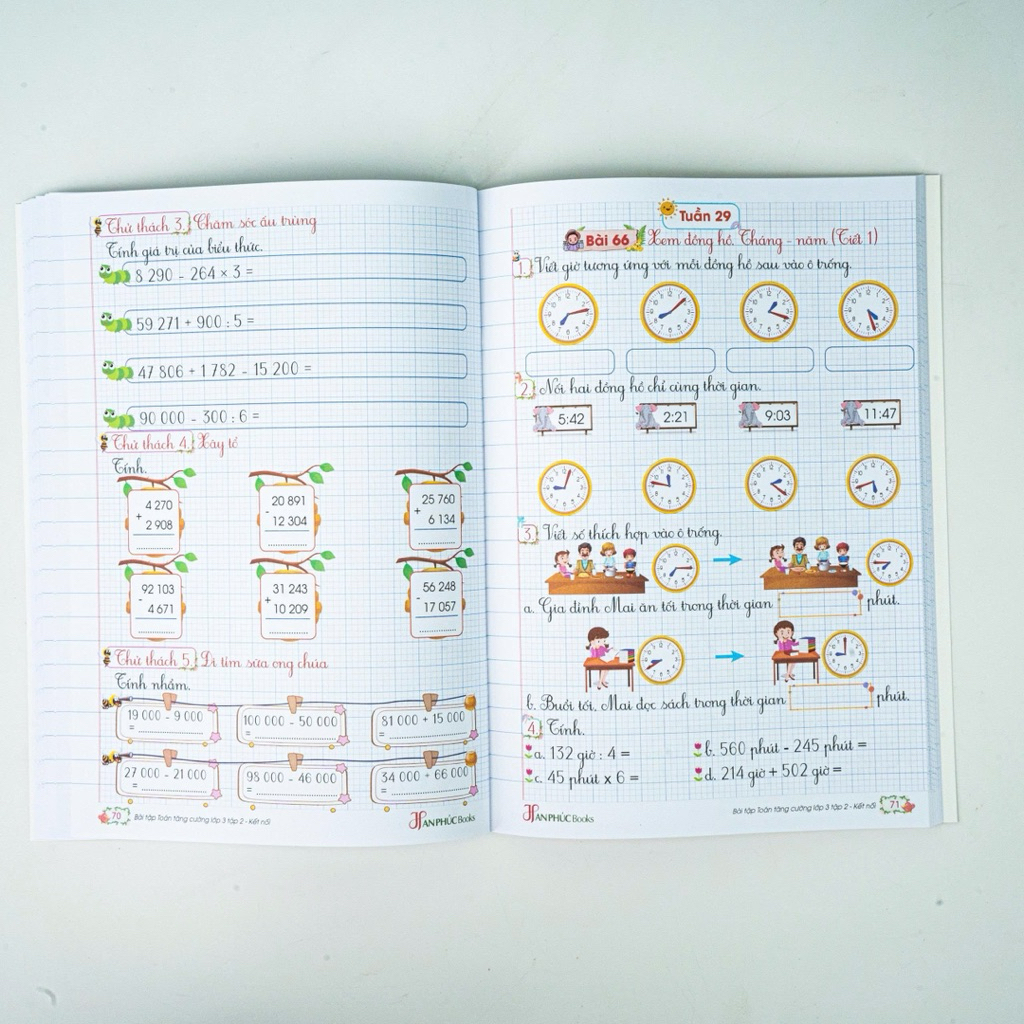 Thử thách 3. Chăm sóc ấu trùng
Tính giá trị của biểu thức.
8 290 - 264 × 3 =
59 271 + 900 : 5 =
47 806 + 1 782 - 15 200 =
90 000 - 300 : 6 =
Thử thách 4. Xây tổ
Tính.
4 270
+
2 908
..............
20 891
-
12 304
..............
25 760
+
6 134
..............
92 103
-
4 671
..............
31 243
+
10 209
..............
56 248
-
17 057
..............
Thử thách 5. Đi tìm sữa ong chúa
Tính nhẩm.
19 000 - 9 000
= ..............
100 000 - 50 000
= ..............
81 000 + 15 000
= ..............
27 000 - 21 000
= ..............
98 000 - 46 000
= ..............
34 000 + 66 000
= ..............
70 Bài tập Toán tăng cường lớp 3 tập 2 - Kết nối
AN PHÚC Books
Tuần 29
Bài 66 Xem đồng hồ. Tháng - năm (Tiết 1)
1. Viết giờ tương ứng với mỗi đồng hồ sau vào ô trống.
2. Nối hai đồng hồ chỉ cùng thời gian.
5:42
2:21
9:03
11:47
3. Viết số thích hợp vào ô trống.
a. Gia đình Mai ăn tối trong thời gian phút.
b. Buổi tối, Mai đọc sách trong thời gian phút.
4. Tính.
a. 132 giờ : 4 =
b. 560 phút - 245 phút =
c. 45 phút x 6 =
d. 214 giờ + 502 giờ =
AN PHÚC Books
Bài tập Toán tăng cường lớp 3 tập 2 - Kết nối 71